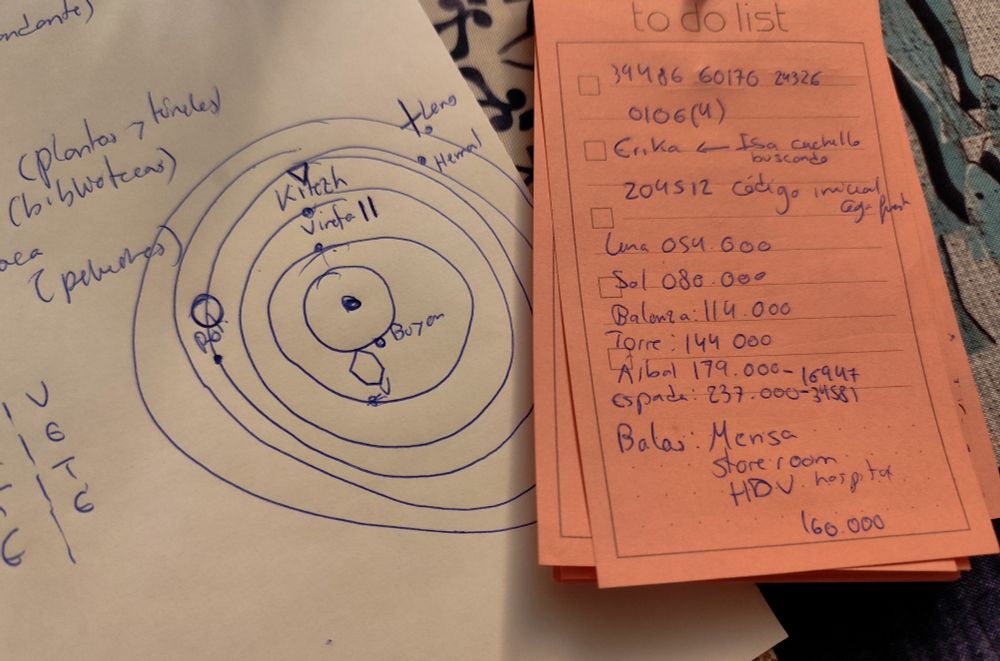 (plantas → túneles
(bibliotecas)
Heno
Hemal
Kitezh
Vineta II
Buyan
V
I E
T
E
E
to do list
39486 60170 24326
0106(4)
Erika ← Isa cuchillo
buscando
204512 código inicial
Luna 054.600
Sol 080.000
Balanza: 114.000
Torre: 144 000
Árbol 179.000-16947
espada: 237.000-34581
Balas: Mensa
store room
HDV hospital
160.000